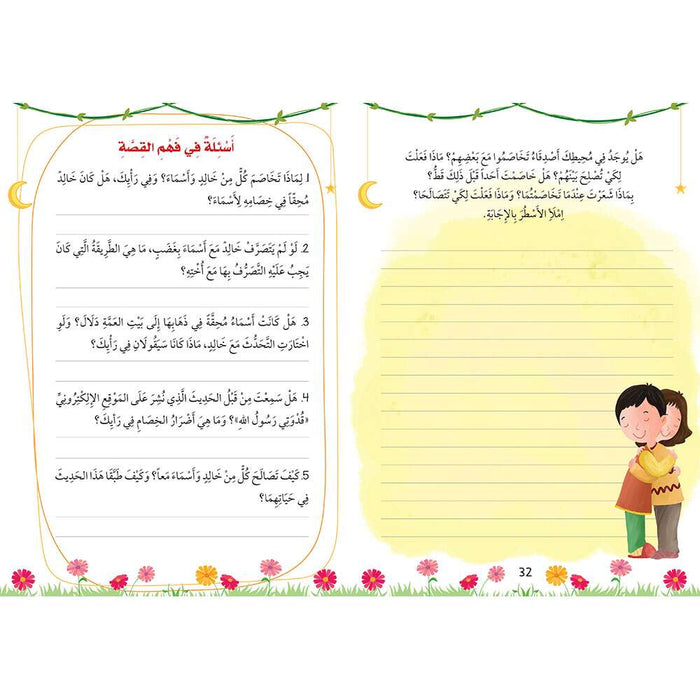 هَلْ يُوجَدُ فِي مُحِيطِكَ أَصْدِقَاءُ تَخَاصَمُوا مَعَ بَعْضِهِمْ؟ مَاذَا فَعَلْتَ
لِكَيْ تُصْلِحَ بَيْنَهُمْ؟ هَلْ خَاصَمْتَ أَحَداً قَبْلَ ذَلِكَ قَطُّ؟
بِمَاذَا شَعَرْتَ عِنْدَمَا تَخَاصَمْتُمَا؟ وَمَاذَا فَعَلْتَ لِكَيْ تَتَصَالَحَا؟
اِمْلَأِ الأَسْطُرَ بِالإِجَابَةِ.
32
أَسْئِلَةٌ فِي فَهْمِ القِصَّةِ
1. لِمَاذَا تَخَاصَمَ كُلٌّ مِنْ خَالِدٍ وَأَسْمَاءَ؟ وَفِي رَأْيِكَ، هَلْ كَانَ خَالِدٌ
مُحِقّاً فِي خِصَامِهِ لِأَسْمَاءَ؟
2. لَوْ لَمْ يَتَصَرَّفْ خَالِدٌ مَعَ أَسْمَاءَ بِغَضَبٍ، مَا هِيَ الطَّرِيقَةُ الَّتِي كَانَ
يَجِبُ عَلَيْهِ التَّصَرُّفُ بِهَا مَعَ أُخْتِهِ؟
3. هَلْ كَانَتْ أَسْمَاءُ مُحِقَّةً فِي ذَهَابِهَا إِلَى بَيْتِ العَمَّةِ دَلَالَ؟ وَلَوِ
اخْتَارَتِ التَّحَدُّثَ مَعَ خَالِدٍ، مَاذَا كَانَا سَيَقُولَانِ فِي رَأْيِكَ؟
4. هَلْ سَمِعْتَ مِنْ قَبْلُ الحَدِيثَ الَّذِي نُشِرَ عَلَى المَوْقِعِ الإِلِكْتِرُونِيِّ
«قُدْوَتِي رَسُولُ اللهِ»؟ وَمَا هِيَ أَضْرَارُ الخِصَامِ فِي رَأْيِكَ؟
5. كَيْفَ تَصَالَحَ كُلٌّ مِنْ خَالِدٍ وَأَسْمَاءَ مَعاً؟ وَكَيْفَ طَبَّقَا هَذَا الحَدِيثَ
فِي حَيَاتِهِمَا؟